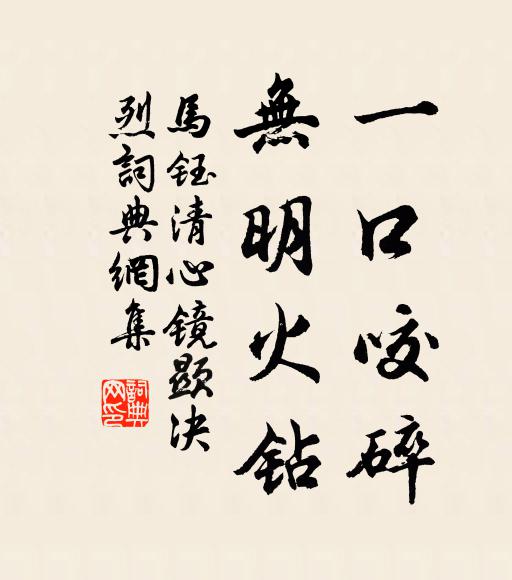 一口咬碎
無明火钻
馬鈺清心镜顯决
烈詞典網集
詞典
网印